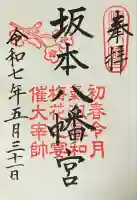 奉拝
初春令月
坂本八幡宮
催大宰帥
令和七年五月三十一日